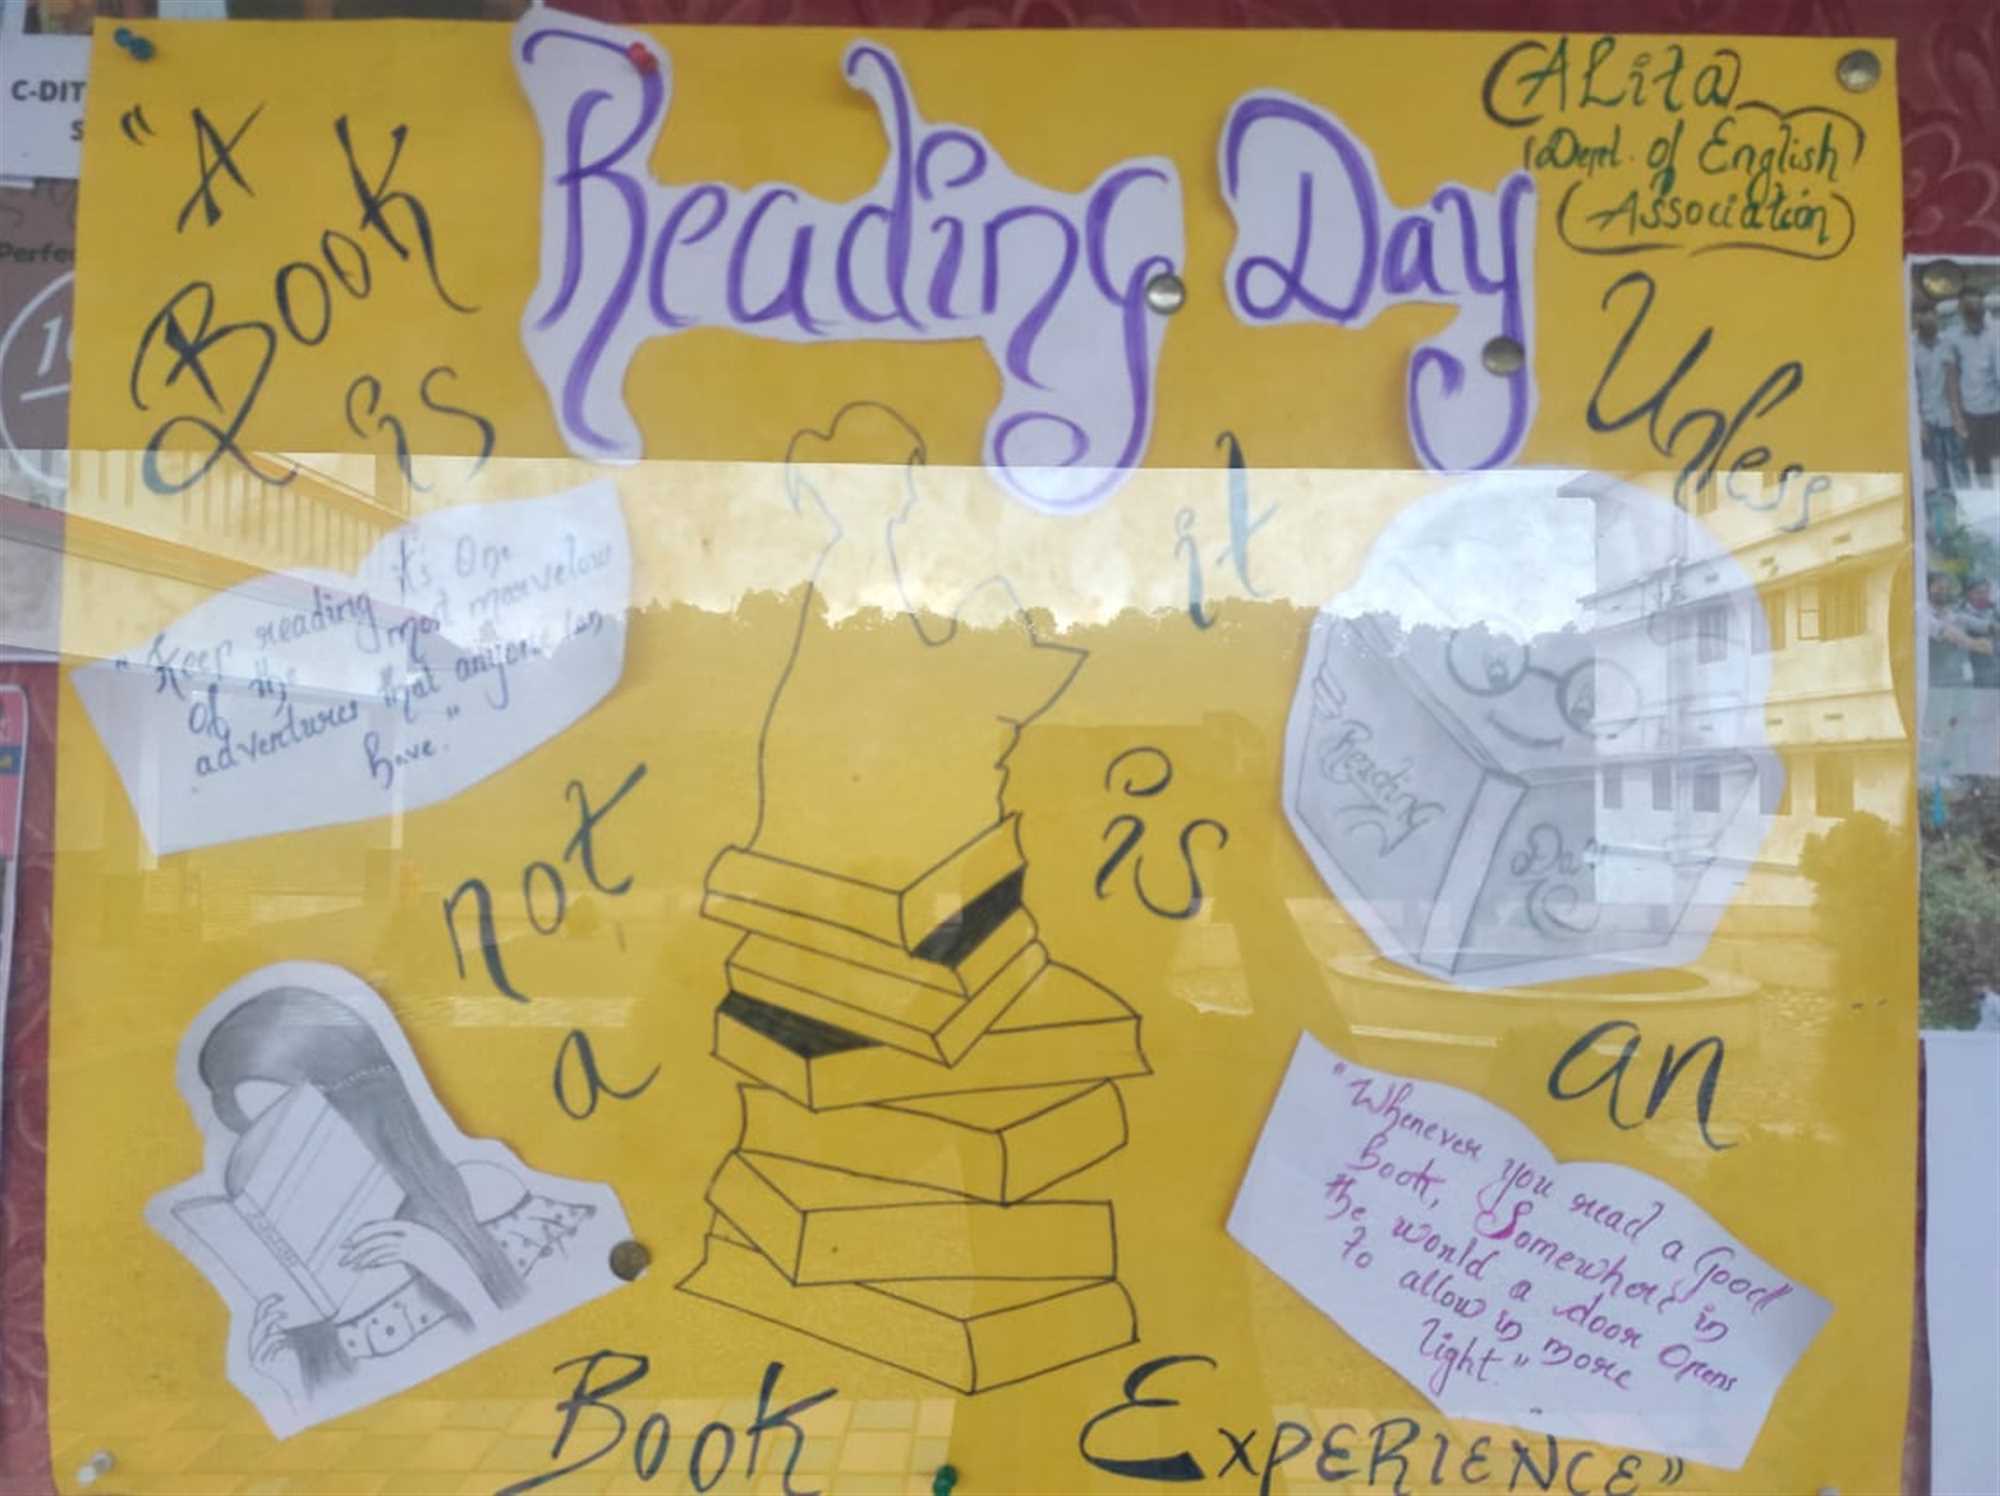 C-DIT
S
Perfe
Reading Day
ALita
Dept. of English
Association
"A
Book
is
not
a
Book
Unless
it
is
an
EXPERIENCE"
"Keep reading it's One
of the most marvelous
adventures that anyone can
have."
Reading
Day
"Whenever you read a Good
Book, Somewhere in
the world a door Opens
to allow in more
light."